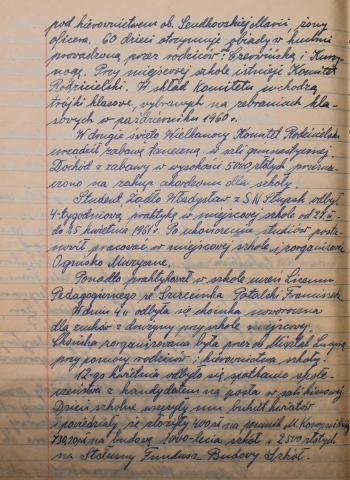 pod kierownictwem ob. Sendkowskiej Marii, żony
oficera. 60 dzieci otrzymuje obiady w kuchni
prowadzonej przez rodziców:
Przy miejscowej szkole istnieje Komitet
Rodzicielski. W skład Komitetu wchodzą
trójki klasowe, wybranych na zebraniach kla-
sowych w październiku 1960 r.
W drugie święto Wielkanocy Komitet Rodzicielski
urządził zabawę taneczną w sali gimnastycznej.
Dochód z zabawy w wysokości 5000 złotych przezna-
czono na zakup akordeonu dla szkoły.
Student Żadło Władysław z SN Słupsk odbył
4-tygodniową praktykę w miejscowej szkole od
do 25 kwietnia 1961 r. Po ukończeniu studiów posta-
nowił pracować w miejscowej szkole i zorganizować
Ognisko Muzyczne.
Ponadto praktykował w szkole uczeń Liceum
Pedagogicznego ze Szczecinka Franciszek
W dniu odbyła się choinka noworoczna
dla zuchów z drużyny przy szkole miejscowej.
Choinka zorganizowana była przez ob.
przy pomocy rodziców i kierownictwa szkoły.
12-go kwietnia odbyło się spotkanie społe-
czeństwa z kandydatem na posła w sali kinowej
Dzieci szkolne wręczyły mu bukiet kwiatów
i powiedziały, że złożyły 400 zł na pomnik M. Konopnickiej
730,20 zł na budowę 1000-lecia szkół i 2500 złotych
na Stołeczny Fundusz Budowy Szkół.